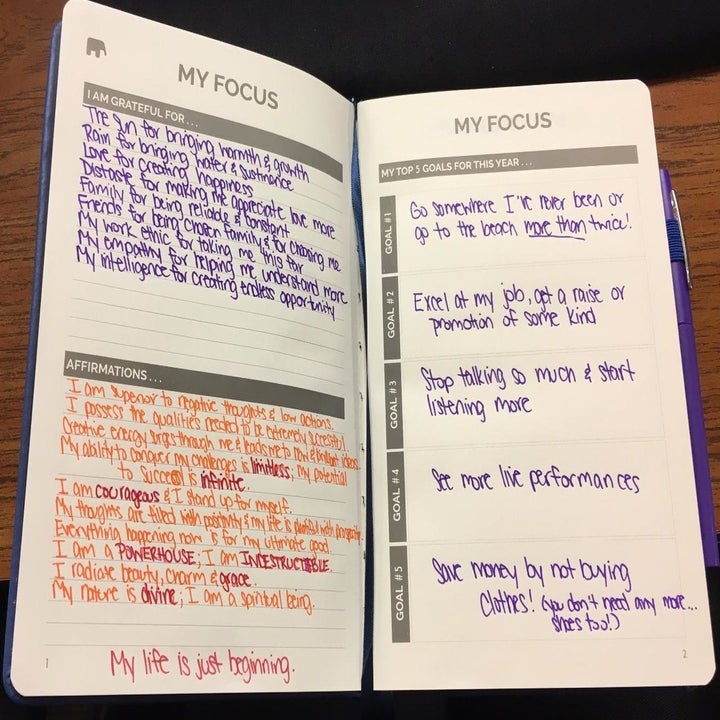 MY FOCUS
I AM GRATEFUL FOR . . .
The sun for bringing warmth & growth
Rain for bringing water & sustinance
Love for creating happiness
Distaste for making me appreciate love more
Family for being reliable & constant
Friends for being chosen family & for choosing me
My work ethic for taking me this far
My empathy for helping me understand more
My intelligence for creating endless opportunity
AFFIRMATIONS . . .
I am superior to negative thoughts & low actions.
I possess the qualities needed to be extremely successful
Creative energy surges through me & leads me to new & brilliant ideas.
My ability to conquer my challenges is limitless; my potential
to succeed is infinite.
I am courageous & I stand up for myself.
My thoughts are filled with positivity & my life is plentiful with prosperity.
Everything happening now is for my ultimate good.
I am a POWERHOUSE; I am INDESTRUCTIBLE.
I radiate beauty, charm & grace.
My nature is divine; I am a spiritual being.
My life is just beginning.
1
MY FOCUS
MY TOP 5 GOALS FOR THIS YEAR . . .
GOAL #1
Go somewhere I've never been or
go to the beach more than twice!
GOAL #2
Excel at my job, get a raise or
promotion of some kind
GOAL #3
Stop talking so much & start
listening more
GOAL #4
See more live performances
GOAL #5
Save money by not buying
clothes! (you don't need any more...
shoes too!)
2